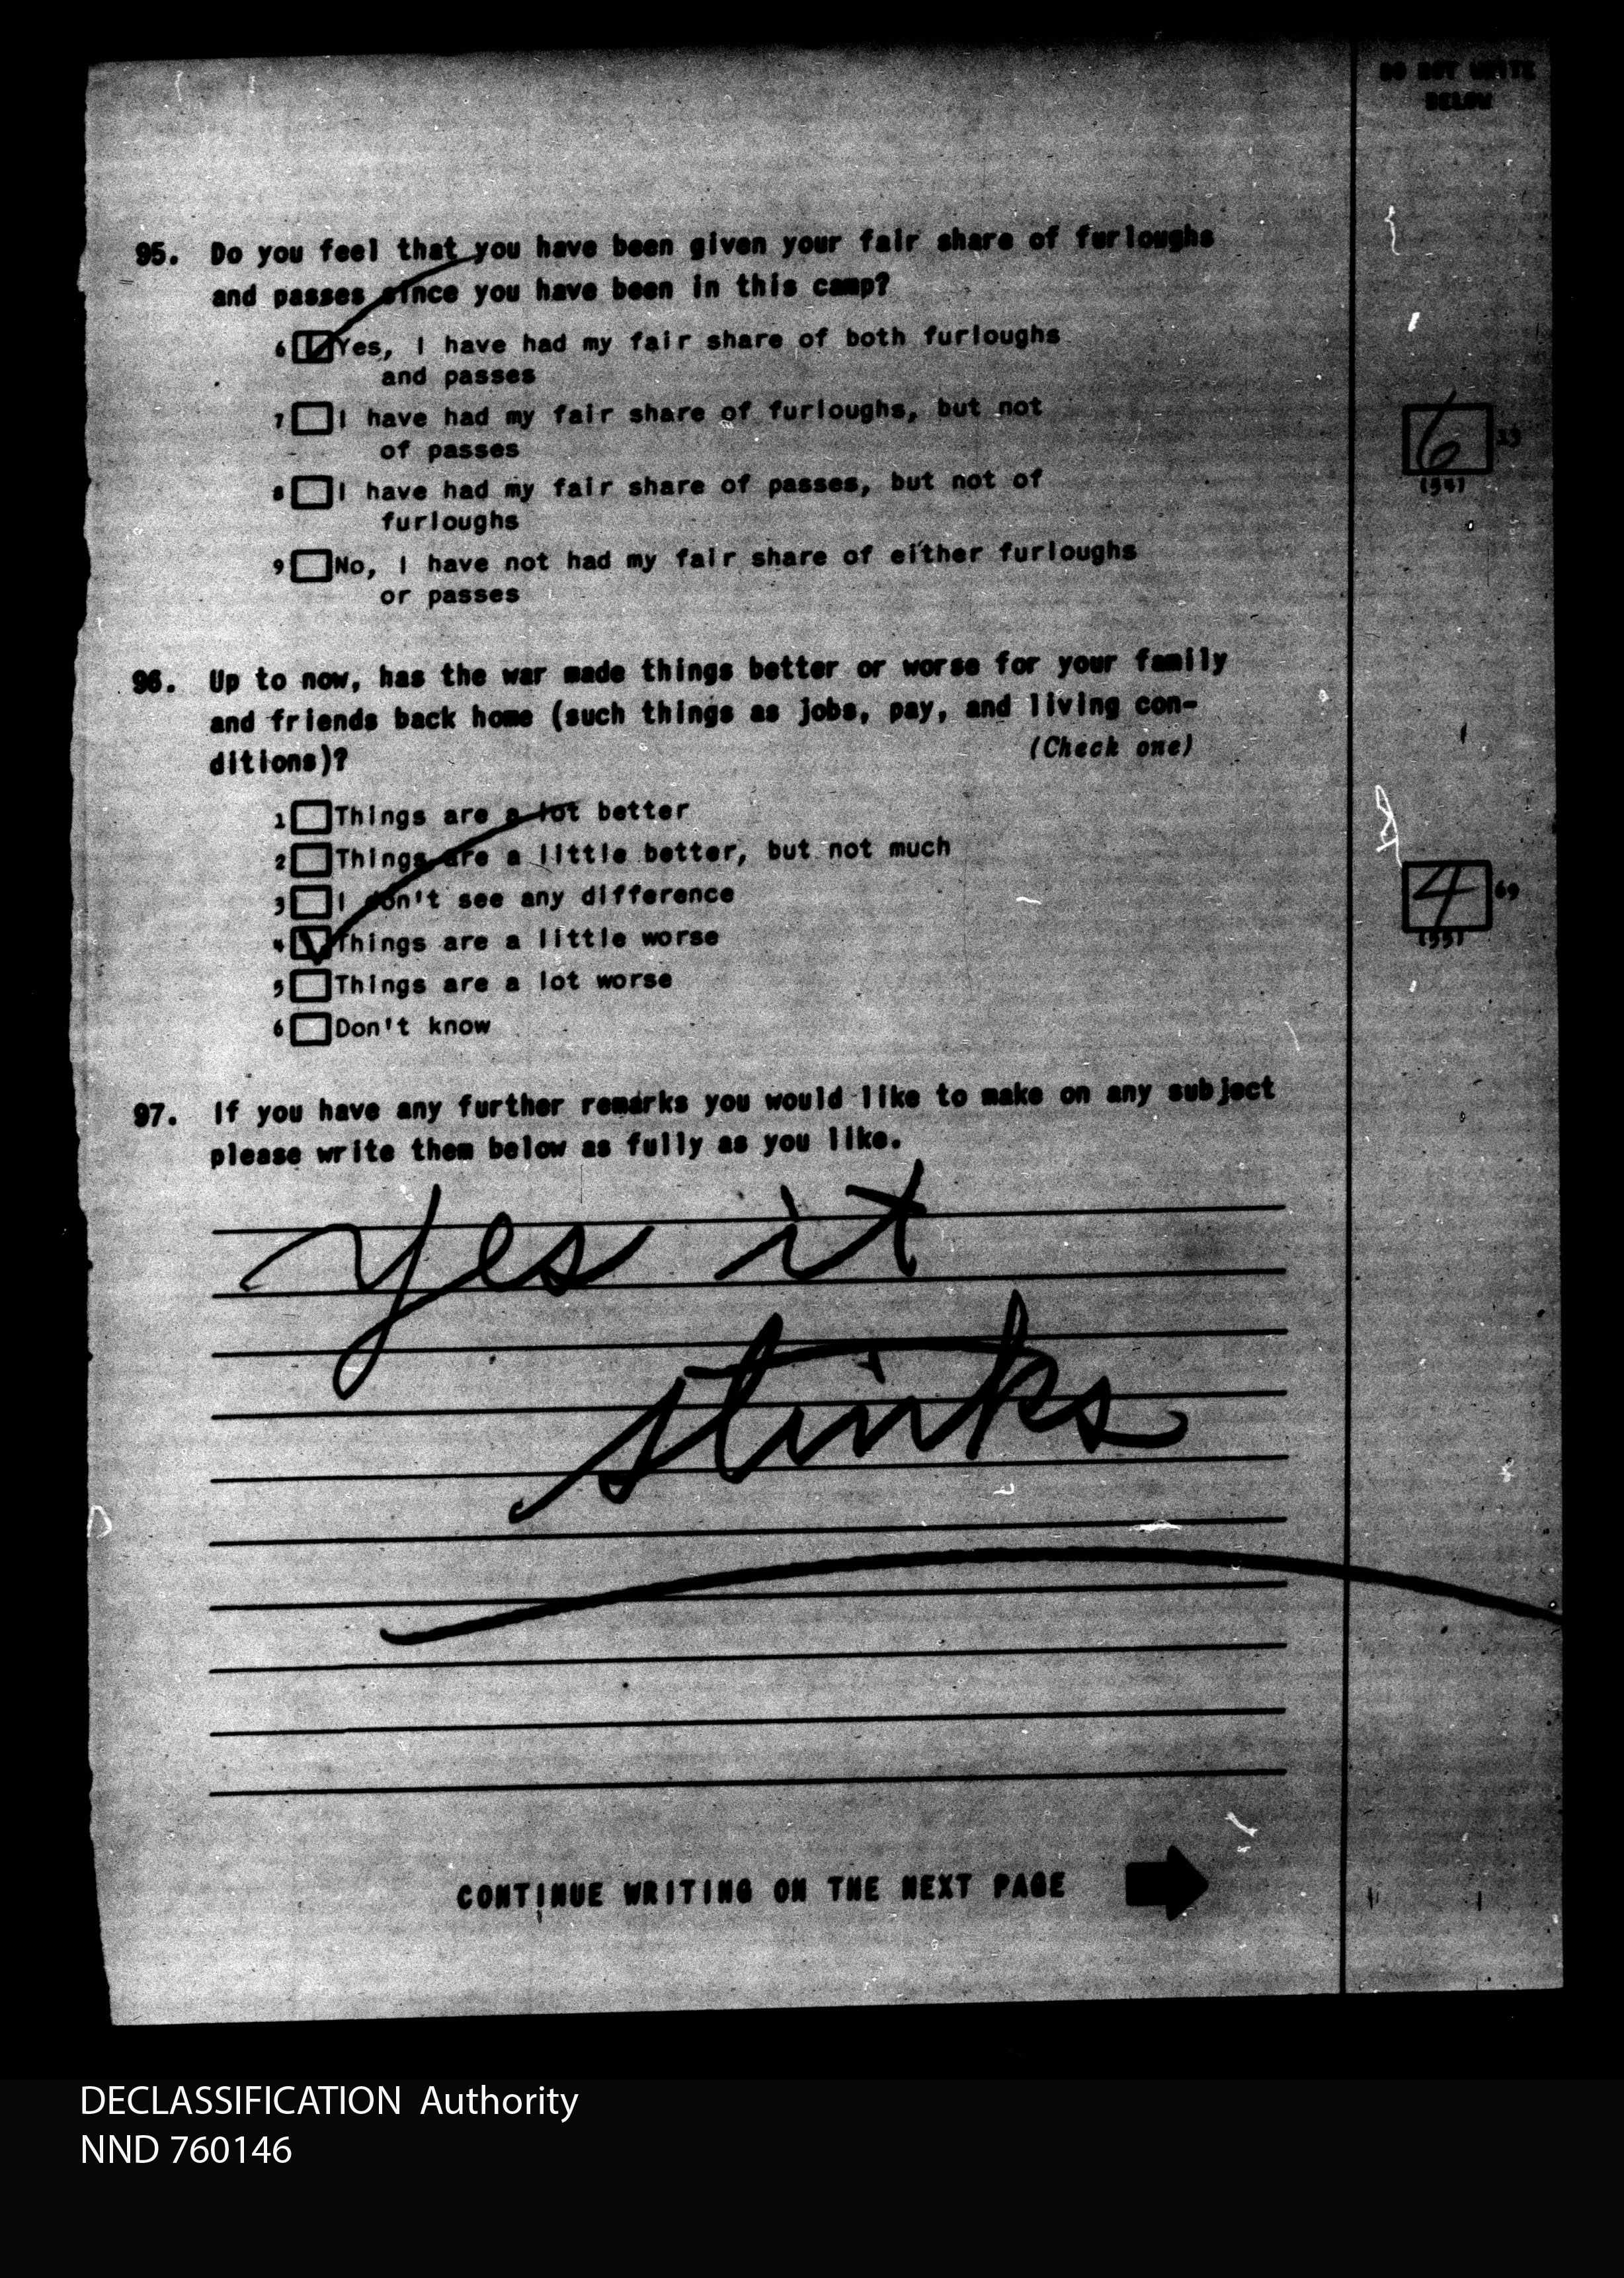 DO NOT WRITE
BELOW
95. Do you feel that you have been given your fair share of furloughs
and passes since you have been in this camp?
6 Yes, I have had my fair share of both furloughs
and passes
7 I have had my fair share of furloughs, but not
of passes
8 I have had my fair share of passes, but not of
furloughs
9 No, I have not had my fair share of either furloughs
or passes
6 13
(54)
96. Up to now, has the war made things better or worse for your family
and friends back home (such things as jobs, pay, and living con-
ditions)? (Check one)
1 Things are a lot better
2 Things are a little better, but not much
3 I don't see any difference
4 Things are a little worse
5 Things are a lot worse
6 Don't know
4 69
(55)
97. If you have any further remarks you would like to make on any subject
please write them below as fully as you like.
Yes it
stinks
CONTINUE WRITING ON THE NEXT PAGE
DECLASSIFICATION Authority
NND 760146